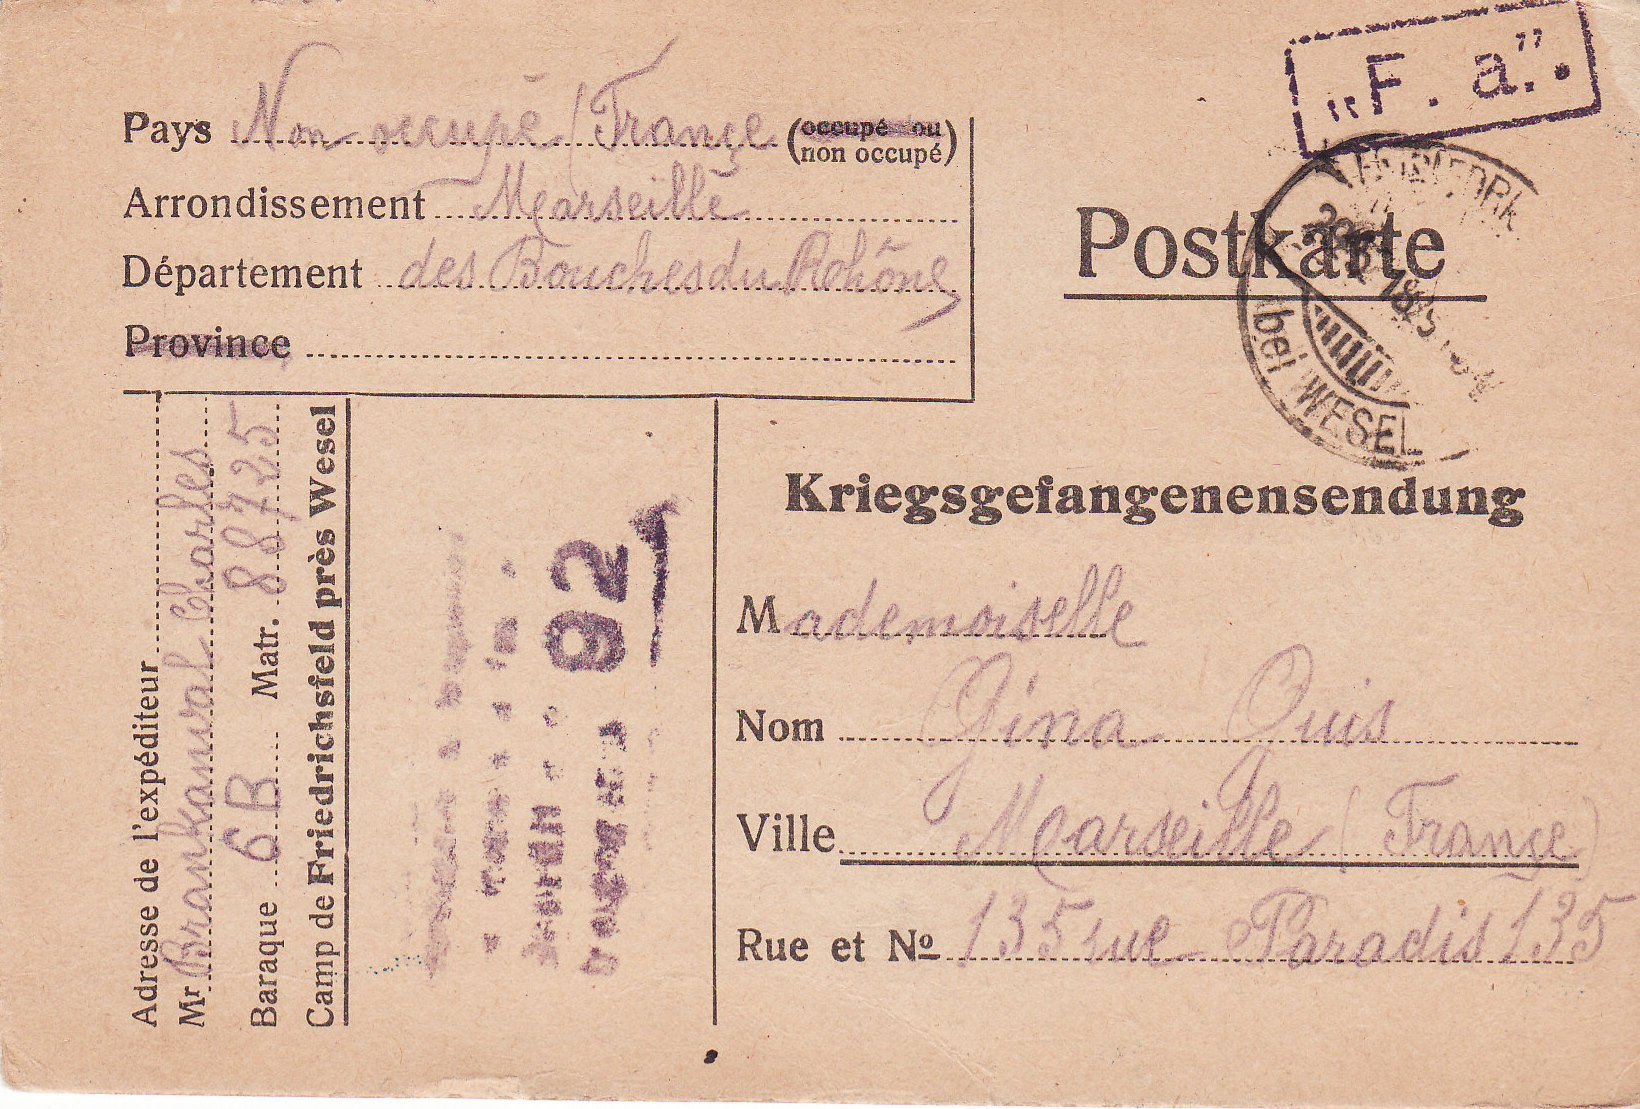 „F. a.”
Pays Non occupé (France (occupé ou
non occupé)
Arrondissement Marseille
Département des Bouches du Rhône
Province
Postkarte
bei WESEL
Kriegsgefangenensendung
Mademoiselle
Nom Gina Ouis
Ville Marseille (France)
Rue et No 135 rue Paradis 135
Adresse de l'expéditeur
Mr Brankanval Charles
Baraque 6B Matr. 88725
Camp de Friedrichsfeld près Wesel
92